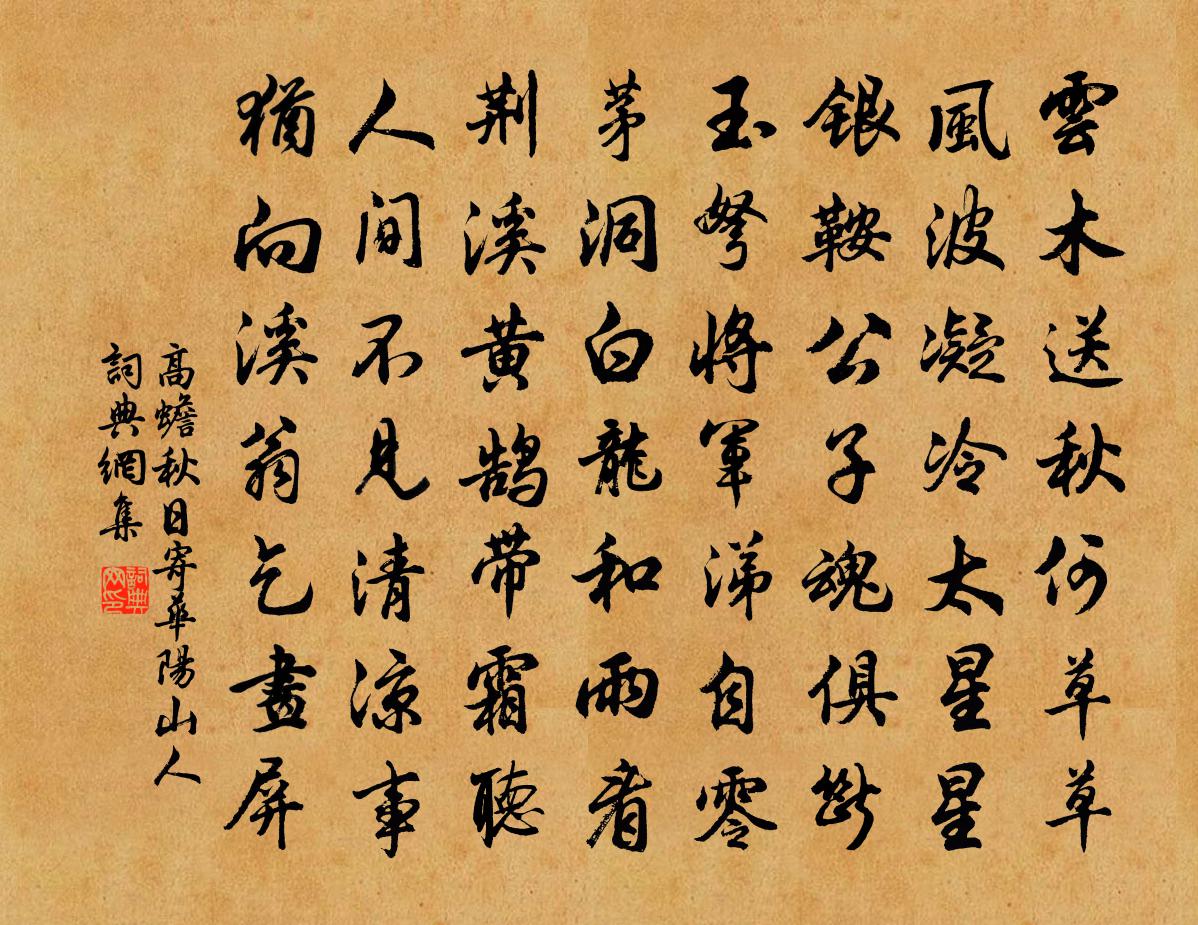 雲木送秋何草草
風波凝冷太星星
銀鞍公子魂俱斷
玉弩將軍涕自零
茅洞白龍和雨看
荆溪黄鹄帶霜聽
人間不見清涼事
猶向溪翁乞畫屏
高蟾秋日寄華陽山人
詞典網集
詞典
网印